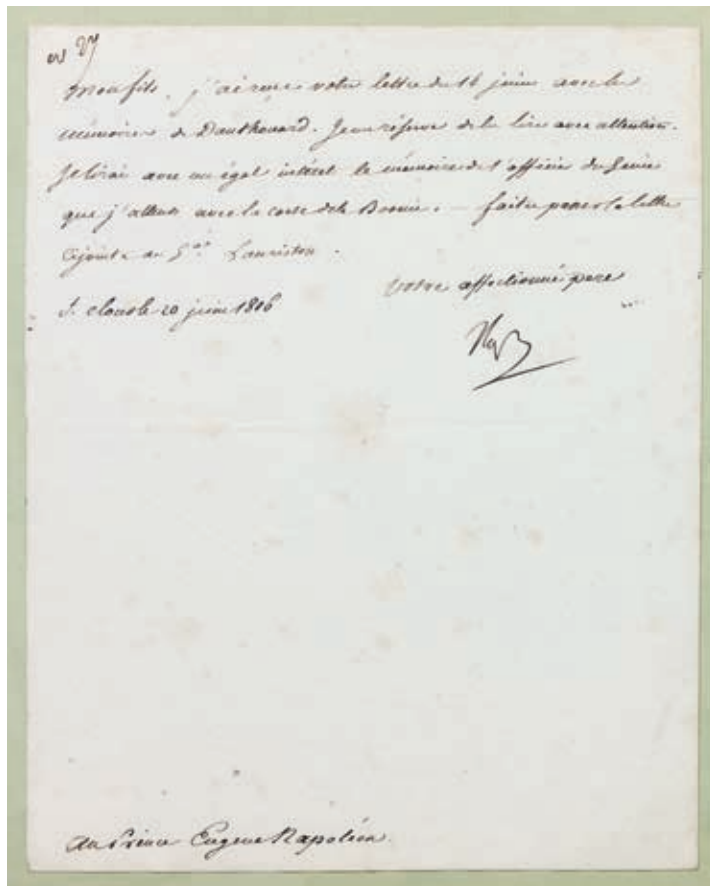 27
Mon fils, j'ai reçu votre lettre du 16 juin avec le
mémoire de Danthouard. Je me réserve de le lire avec attention.
Je lirai avec un égal intérêt le mémoire de l'officier du Génie
que j'attens avec la carte de la Bosnie. — faites passer la lettre
cijointe au G.al Lauriston.
Votre affectionné pere
S.t Cloud le 20 juin 1806
Nap
Au Prince Eugene Napoléon.